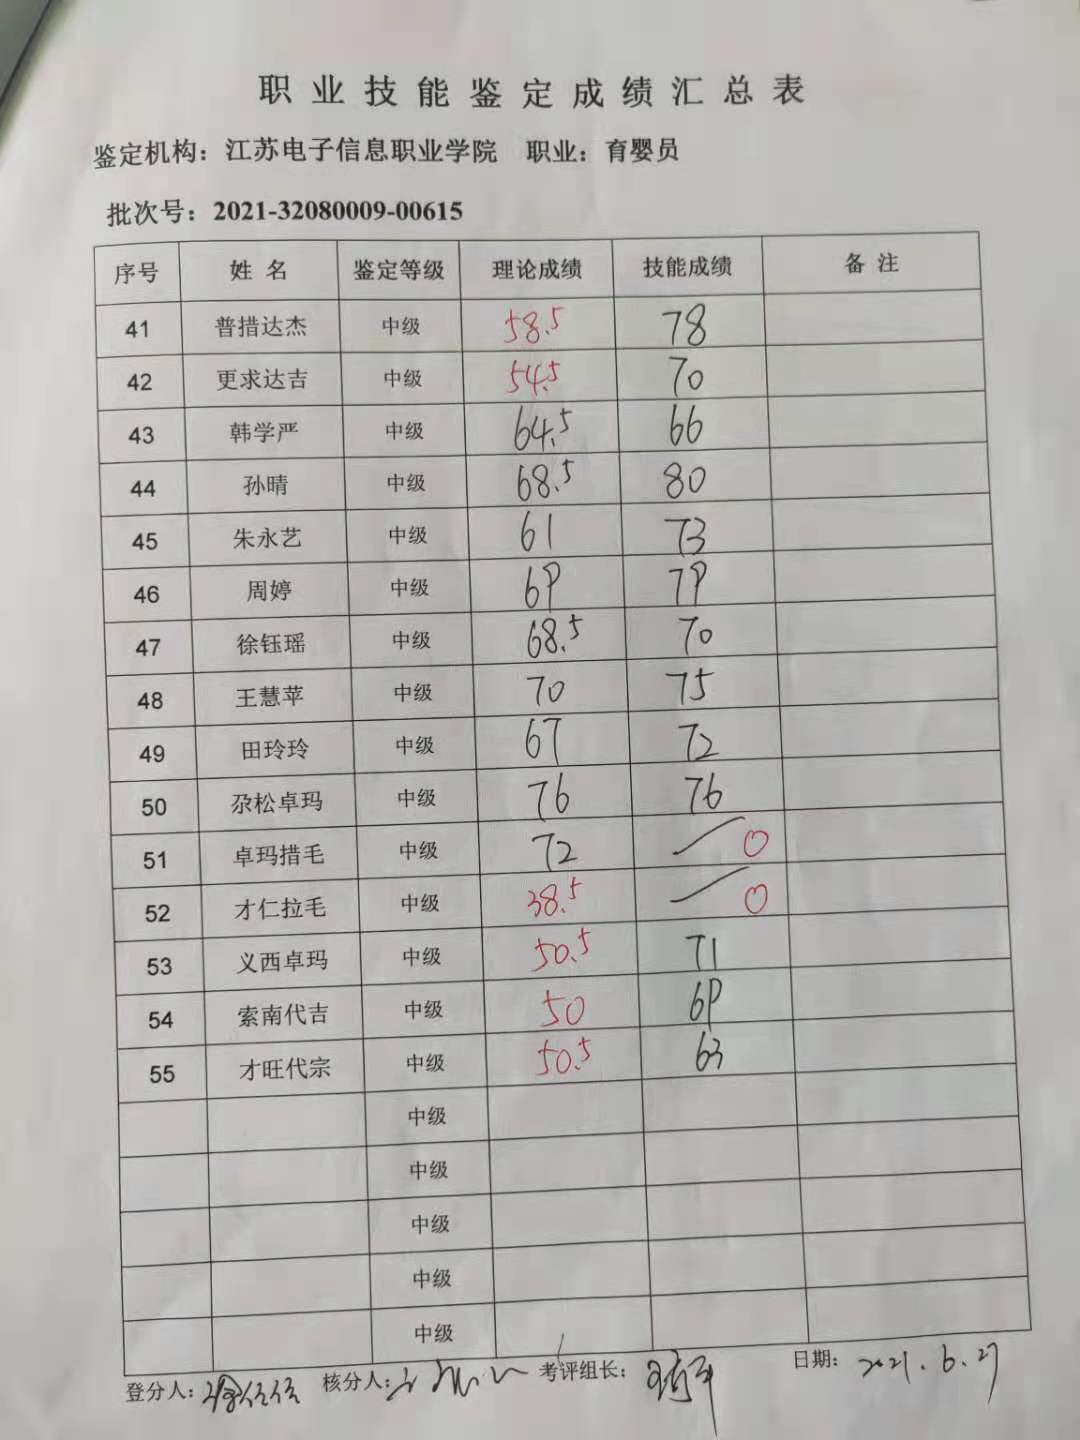 职业技能鉴定成绩汇总表
鉴定机构：江苏电子信息职业学院 职业：育婴员
批次号：2021-32080009-00615
序号 姓 名 鉴定等级 理论成绩 技能成绩 备 注
41 普措达杰 中级 58.5 78
42 更求达吉 中级 54.5 70
43 韩学严 中级 64.5 66
44 孙晴 中级 68.5 80
45 朱永艺 中级 61 73
46 周婷 中级 69 79
47 徐钰瑶 中级 68.5 70
48 王慧苹 中级 70 75
49 田玲玲 中级 67 72
50 尕松卓玛 中级 76 76
51 卓玛措毛 中级 72 0
52 才仁拉毛 中级 38.5 0
53 义西卓玛 中级 50.5 71
54 索南代吉 中级 50 69
55 才旺代宗 中级 50.5 63
中级
中级
中级
中级
中级
登分人： 核分人： 考评组长： 日期：2021.6.27